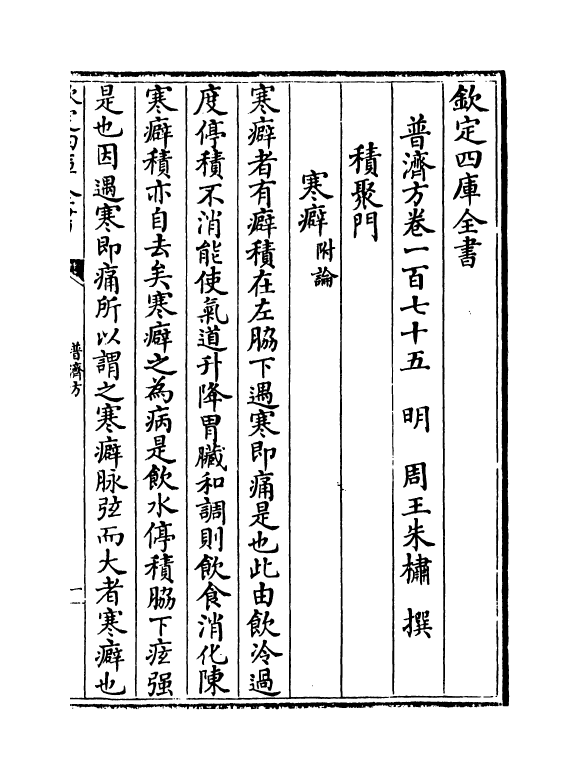 欽定四庫全書
普濟方卷一百七十五　明　周王朱橚　撰
積聚門
寒癖附論
寒癖者有癖積在左脇下遇寒即痛是也此由飲冷過
度停積不消能使氣道升降胃臟和調則飲食消化陳
寒癖積亦自去矣寒癖之為病是飲水停積脇下痃强
是也因遇寒即痛所以謂之寒癖脉弦而大者寒癖也
普濟方
一